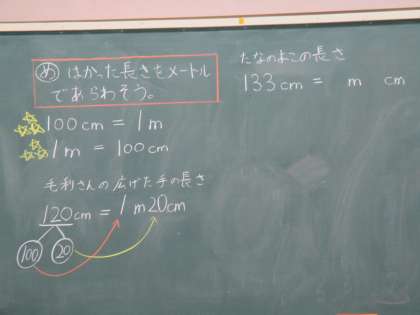 め はかった長さをメートル
であらわそう。
100cm = 1m
1m = 100cm
毛利さんの広げた手の長さ
120cm = 1m20cm
100 20
たなのよこの長さ
133cm = m cm